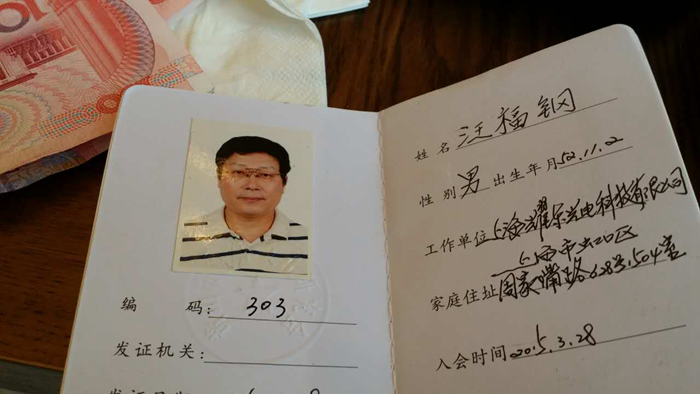 编 码: 303
发证机关:
姓名 汪福钢
性别 男 出生年月 52.11.2
工作单位 上海耀光电科技有限公司
上海市
家庭住址 周家嘴路 504室
入会时间 2015.3.28